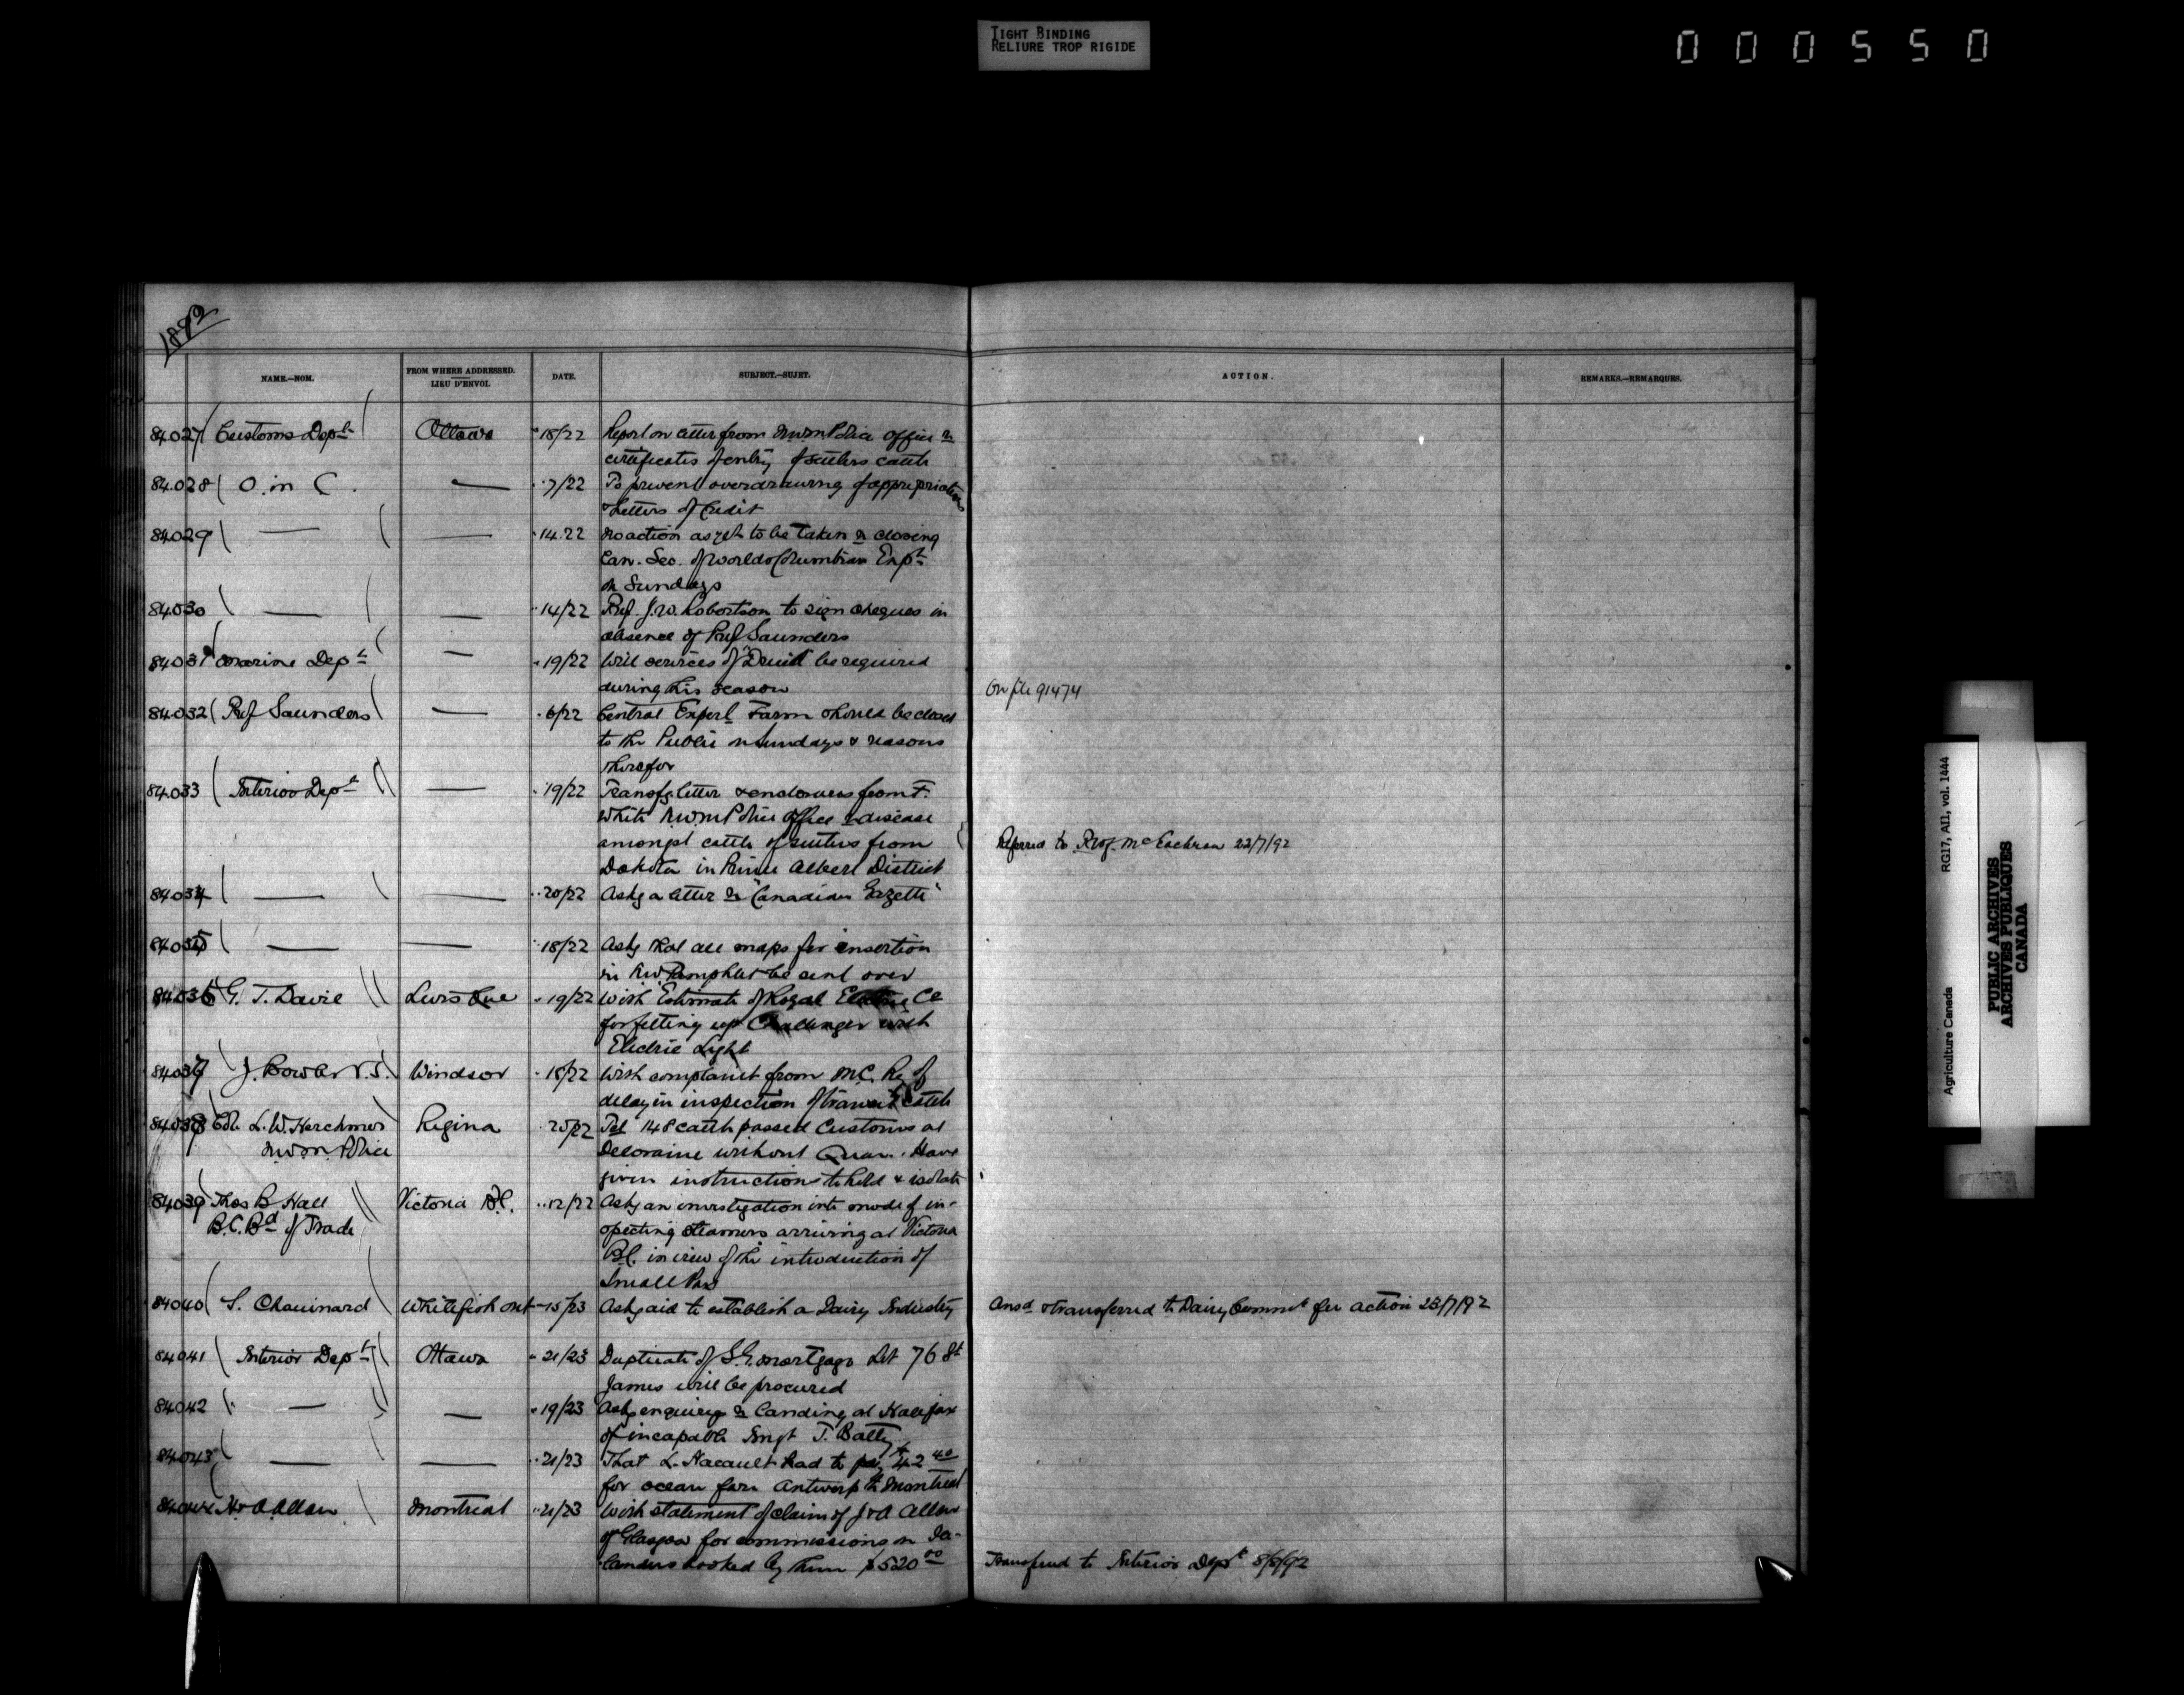 TIGHT BINDING
RELIURE TROP RIGIDE
000550
1892
NAME.—NOM.
FROM WHERE ADDRESSED.
LIEU D'ENVOI.
DATE.
SUBJECT.—SUJET.
ACTION.
REMARKS.—REMARQUES.
84027 Customs Dept Ottawa " 18/22 Report on letter from N.W.M Police Office re
certificates of entry of settlers cattle
84028 O. in C. — " 7/22 To prevent overdrawing of appropriations
& Letters of Credit
84029 — — " 14.22 No action as yet to be taken re closing
Can. Sec. of Worlds Columbian Expn
on Sundays
84030 — — " 14/22 Prof. J.W. Robertson to sign cheques in
absence of Prof Saunders
84031 Marine Dept — " 19/22 Will services of "Druid" be required
during this season
On file 91474
84032 Prof Saunders — " 6/22 Central Experl Farm should be closed
to the Public on Sundays & reasons
therefor
84033 Interior Dept — " 19/22 Transfg letter & enclosures from F.
White N.W.M Police Office re disease
amongst cattle of settlers from
Dakota in Prince Albert District
Referred to Prof. McEachran 22/7/92
84034 — — " 20/22 Askg a letter re "Canadian Gazette"
84035 — — " 18/22 Askg that all maps for insertion
in N.W. Pamphlet be sent over
84036 G. T. Davie Levis Que " 19/22 With Estimate of Royal Electric Co
for fitting up Challenger with
Electric Light
84037 J. Bowler V.S. Windsor " 18/22 With complaint from M.C. Ry of
delay in inspection of transit cattle
84038 L. W. Herchmer Regina " 20/22 Tel 148 cattle passed Customs at
N.W.M. Police
Deloraine without Quan. Have
given instructions to hold & isolate
84039 Thos B Hall Victoria B.C. " 12/22 Askg an investigation into mode of in-
B.C. Bd of Trade
specting steamers arriving at Victoria
B.C. in view of the introduction of
Small Pox
84040 S. Chouinard Whitefish Ont " 15/23 Askg aid to establish a Dairy Industry
Ansd & transferred to Dairy Commr for action 23/7/92
84041 Interior Dept Ottawa " 21/23 Duplicate of S.G. mortgage Lot 76 St
James will be procured
84042 — — " 19/23 Askg enquiry re landing at Halifax
of incapable Imgt T. Batty
84043 — — " 21/23 That L. Hacault had to pay $42 40
for ocean fare Antwerp to Montreal
84044 H & A Allan Montreal " 21/23 With statement of claim of J & A Allan
of Glasgow for commissions on Ice-
landers booked by them $520 00
Transferred to Interior Dept 8/8/92
RG17, AII, vol. 1444
Agriculture Canada
PUBLIC ARCHIVES
ARCHIVES PUBLIQUES
CANADA